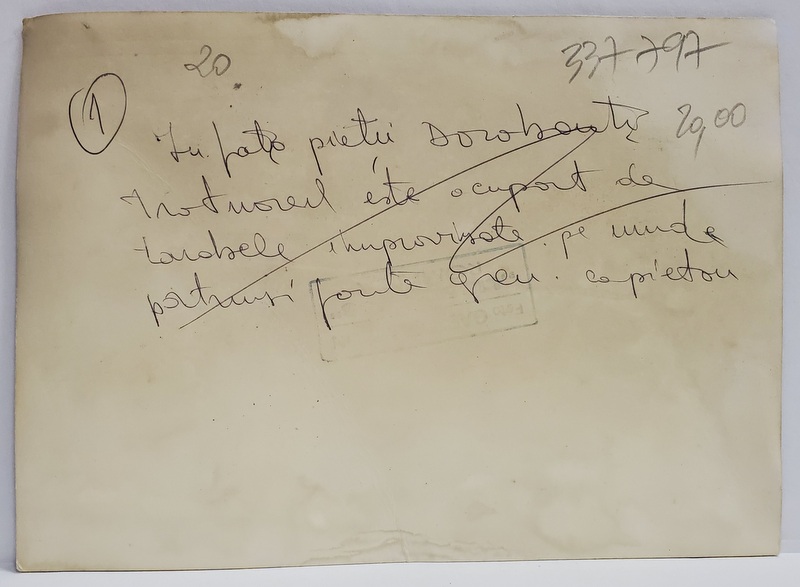 20
337797
1
20,00
In fața pieții Dorobanți
trotuarul este ocupat de
tarabele improvizate pe unde
pătrunzi foarte greu. ca pieton